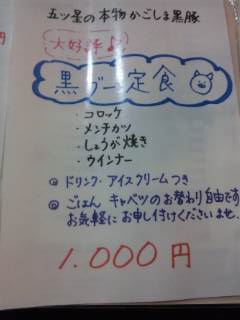 五ツ星の本物かごしま黒豚
大好評♪
黒ブー定食
・コロッケ
・メンチカツ
・しょうが焼き
・ウインナー
◎ドリンク・アイスクリームつき
◎ごはん キャベツのお替わり自由です
お気軽にお申し付けくださいませ。
1.000円
円